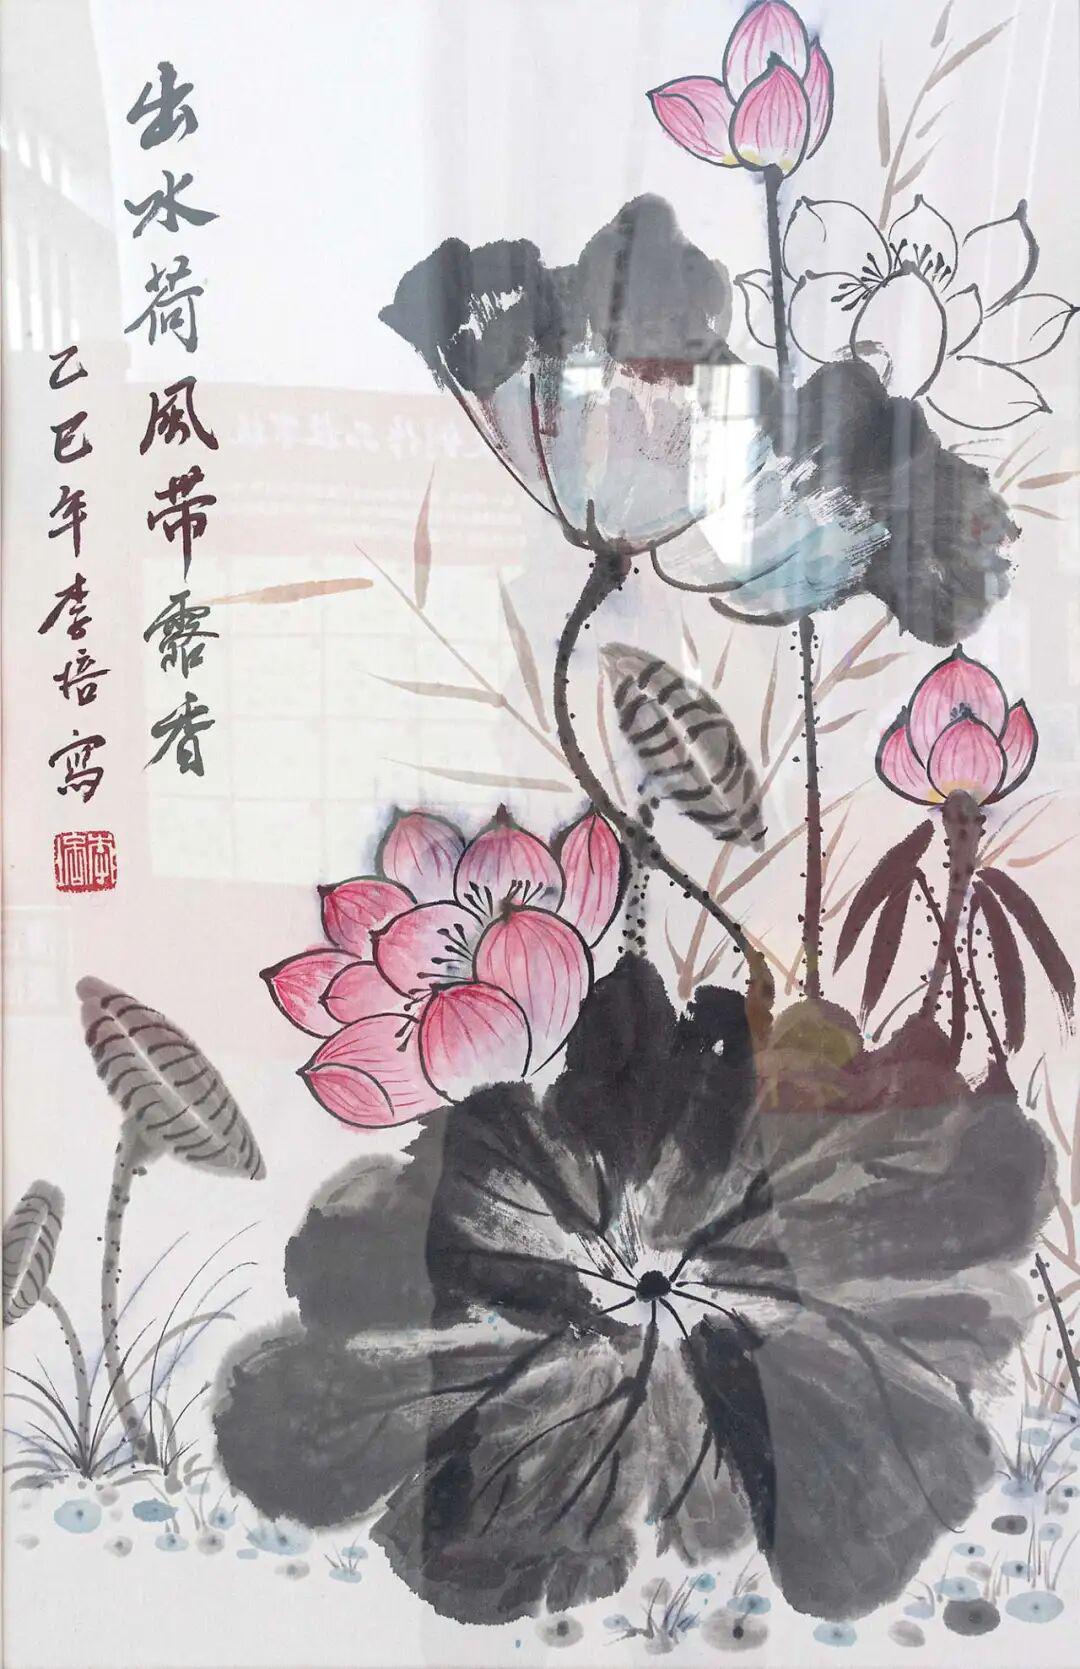 出水荷風带露香
乙巳年李培寫